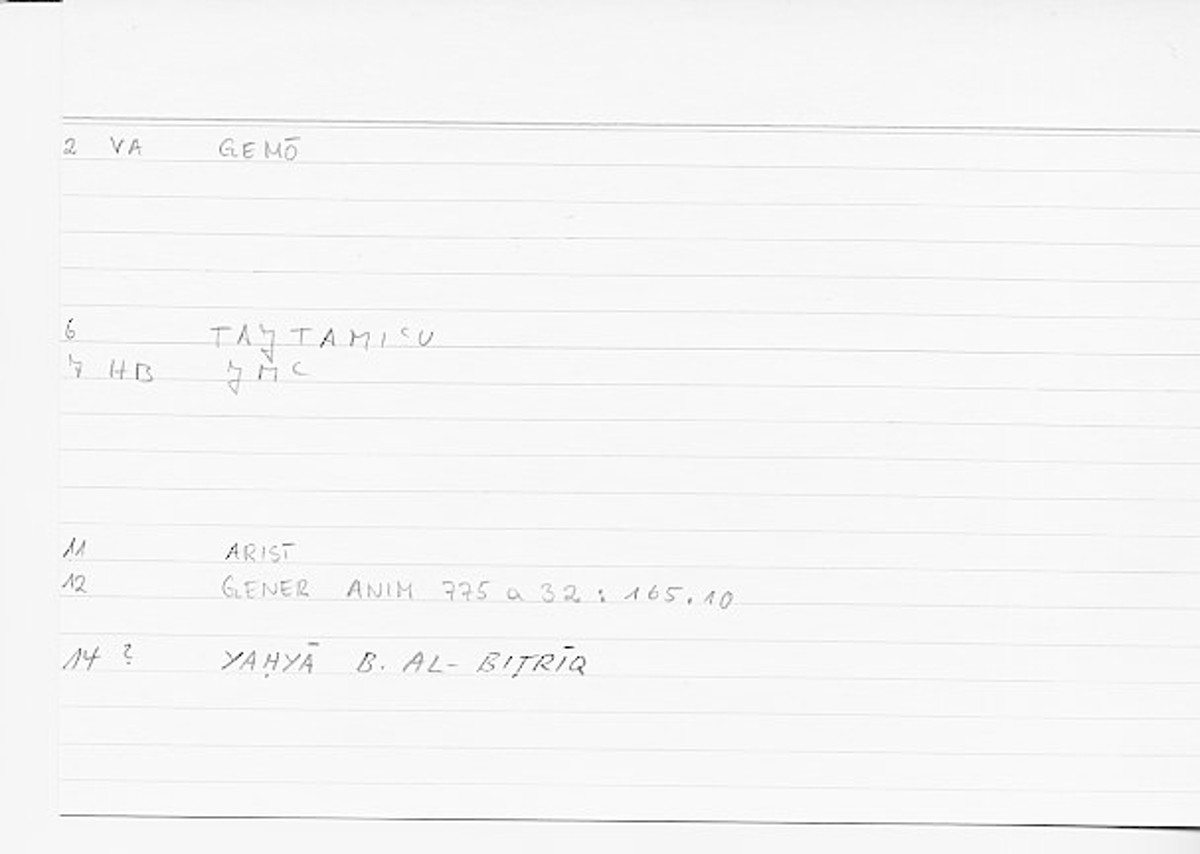 2 VA GEMŌ
6 TAJTAMIʿU
7 HB JMʿ
11 ARIST
12 GENER ANIM 775 a 32 : 165.10
14 ? YAḤYĀ B. AL-BIṬRĪQ